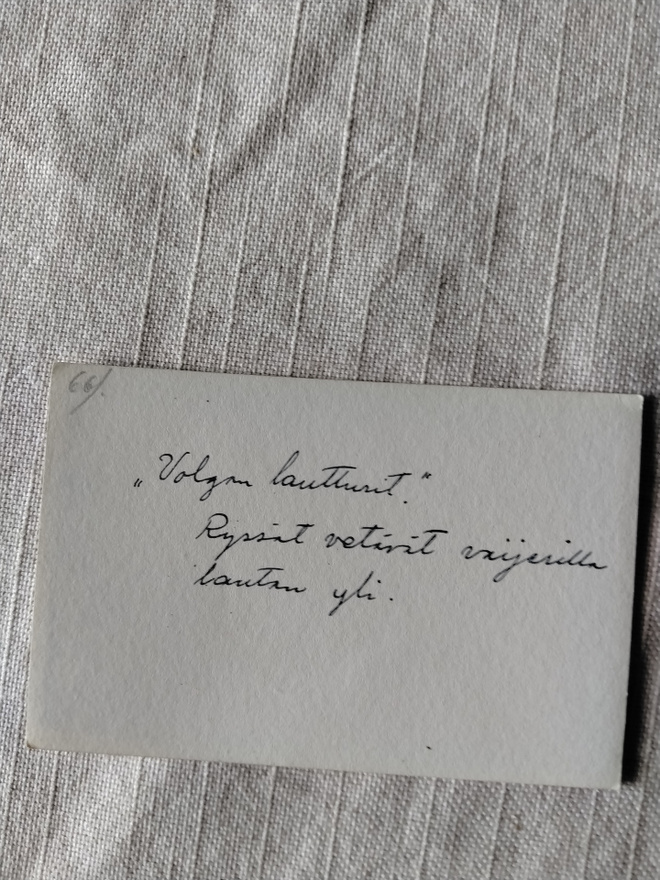 66).
„Volgan lautturit.“
Ryssät vetävät vaijerilla
lautan yli.